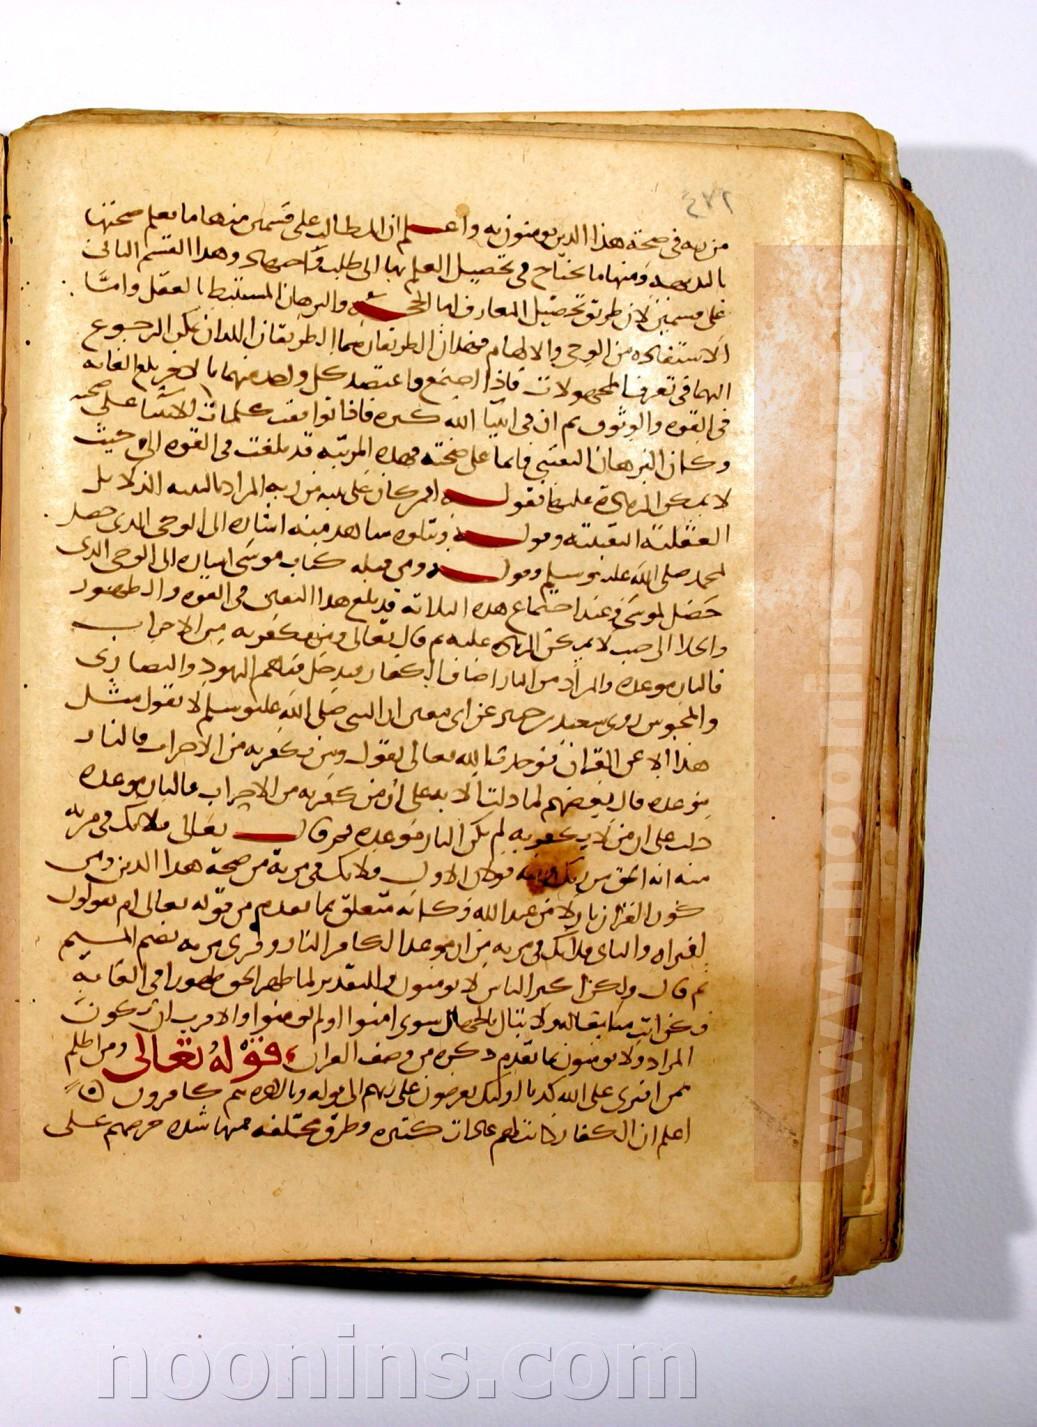 ٤٧٢
من ربه في صحة هذا الدين يومنون به واعلم ان المطالب على قسمين منها ما يعلم صحتها
بالبديهة ومنها ما يحتاج في تحصيل العلم بها الى طلب واجتهاد وهذا القسم الثاني
على قسمين لان طريق تحصيل المعارف اما الحجة والبرهان المستنبط بالعقل واما
الاستفادة من الوحي والالهام فهذان الطريقان هما الطريقان اللذان يمكن الرجوع
اليهما في تعرف المجهولات فاذا اجتمعا واعتضد كل واحد منهما بالاخر بلغ الغاية
في القوة والوثوق ثم ان في انبيا الله كثرة فاذا توافقت كلمات الانبيا على صحته
وكان البرهان اليقيني قايما على صحته فهذه المرتبة قد بلغت في القوة الى حيث
لا يمكن الزيادة عليها فقوله افمن كان على بينة من ربه المراد بالبينة الدلايل
العقلية اليقينية وقوله ويتلوه شاهد منه اشارة الى الوحي الذي حصل
لمحمد صلى الله عليه وسلم وقوله ومن قبله كتاب موسى اشارة الى الوحي الذي
حصل لموسى وعند اجتماع هذه الثلاثة قد بلغ هذا اليقين في القوة والظهور
والجلا الى حيث لا يمكن الزيادة عليه ثم قال تعالى ومن يكفر به من الاحزاب
فالنار موعده والمراد من النار اصناف الكفار فيدخل فيهم اليهود والنصارى
والمجوس روى سعيد بن جبير عن ابي موسى ان النبي صلى الله عليه وسلم لا يقول مثل
هذا الا عن القران فوجدت الله تعالى يقول ومن يكفر به من الاحزاب فالنار
موعده قال بعضهم لما دلت الاية على ان من يكفر به من الاحزاب فالنار موعده
دلت على ان من لا يكفر به لم يكن النار موعده ثم قال تعالى فلا تك في مرية
منه انه الحق من ربك وفيه قولان الاول فلا تك في مرية من صحة هذا الدين ومن
كون القران نازلا من عند الله وكانه متعلق بما تقدم من قوله تعالى ام يقولون
افتراه والثاني فلا تك في مرية من ان موعد الكافر النار وقرى مرية بضم الميم
ثم قال ولكن اكثر الناس لا يومنون والتقدير لما ظهر الحق ظهورا في الغاية
فكن انت متابعا له ولا تبال بالجهال سوى امنوا او لم يومنوا والاقرب ان يكون
المراد ولا يومنون بما تقدم ذكره من وصف القران قوله تعالى ومن اظلم
ممن افترى على الله كذبا اوليك يعرضون على ربهم الى قوله وبالاخرة هم كافرون
اعلم ان الكفار كانت لهم عادات كثيرة وطرق مختلفة فمنها شدة حرصهم على
www.noonins.com
noonins.com